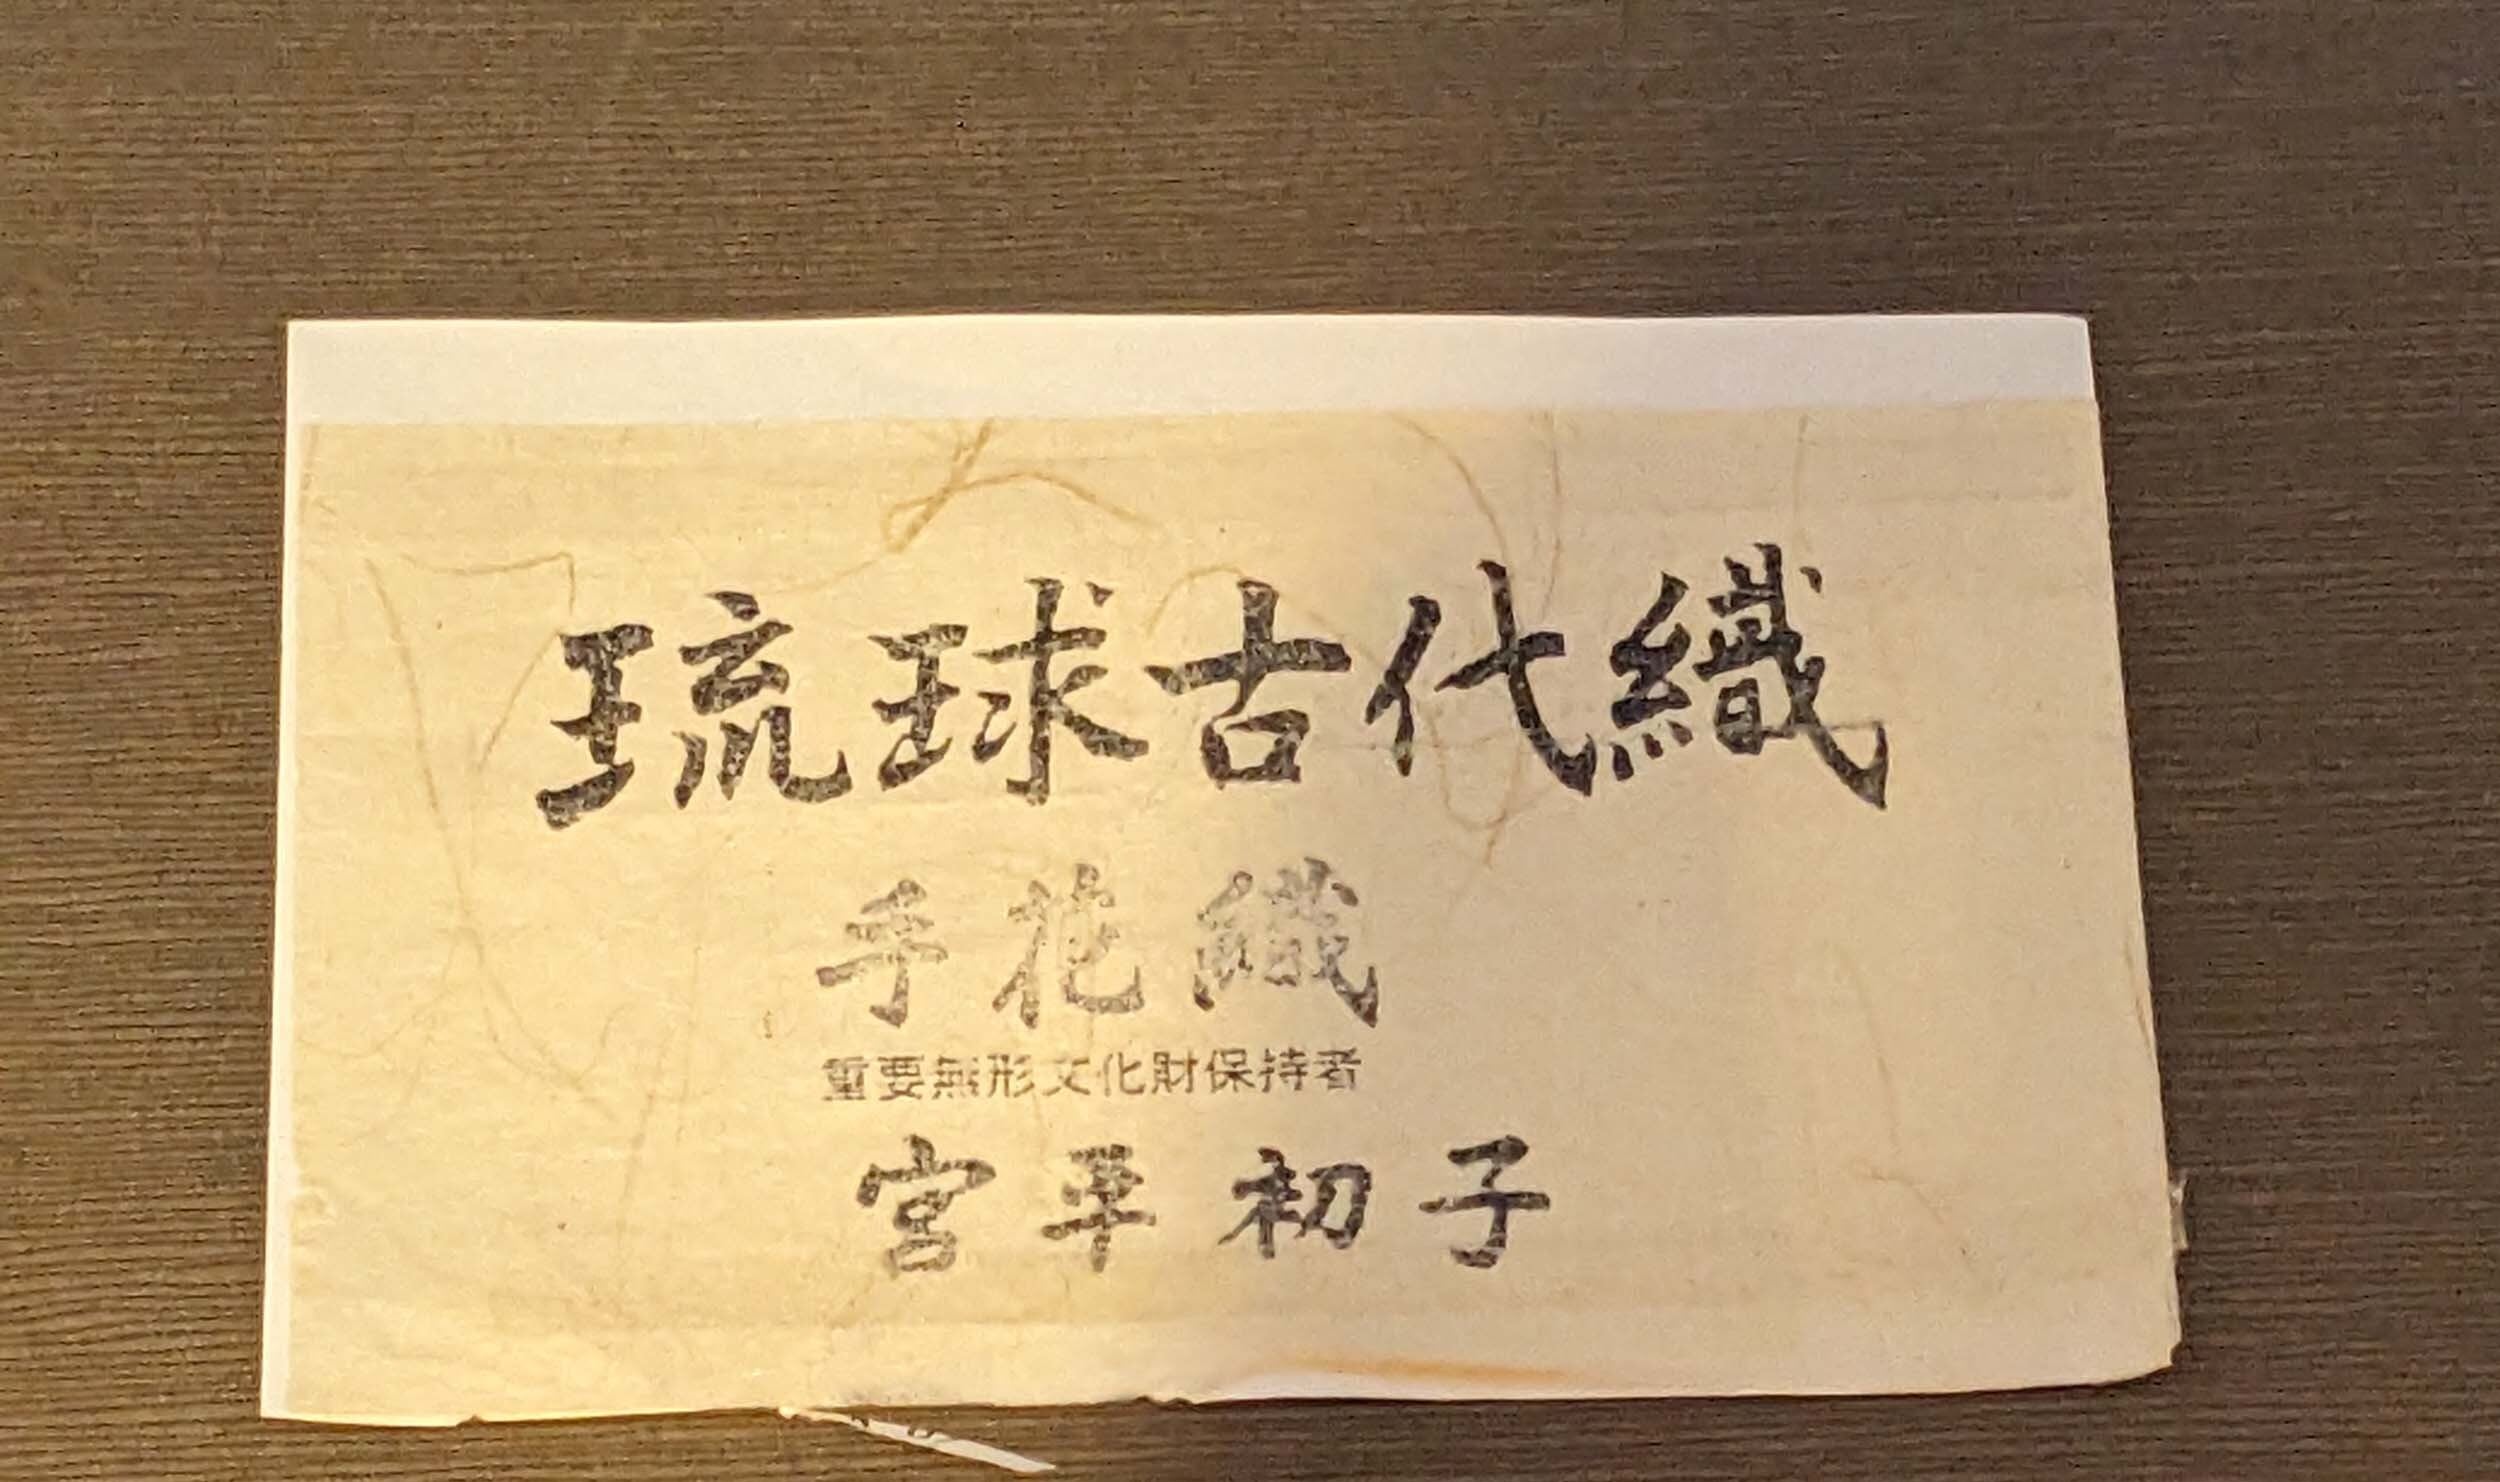 琉球古代織
手花織
重要無形文化財保持者
宮平初子